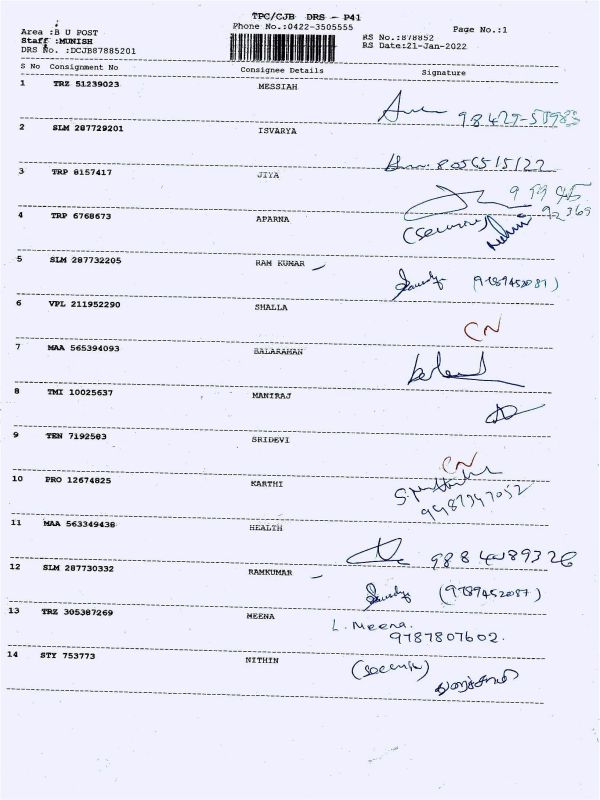 TPC/CJB DRS - P41
Area :B U POST Phone No.:0422-3505555 Page No.:1
Staff :MUNISH RS No.:878852
DRS No. :DCJB87885201 RS Date:21-Jan-2022
S No Consignment No Consignee Details Signature
1 TRZ 51239023 MESSIAH
2 SLM 287729201 ISVARYA
8056515122
3 TRP 8157417 JIYA
4 TRP 6768673 APARNA
(Security)
5 SLM 287732205 RAM KUMAR
(9789452087)
6 VPL 211952290 SHALLA
CN
7 MAA 565394093 BALARAMAN
8 TMI 10025637 MANIRAJ
9 TEN 7192583 SRIDEVI
CN
10 PRO 12674825 KARTHI
9487347052
11 MAA 563349438 HEALTH
12 SLM 287730332 RAMKUMAR
(9789452087)
13 TRZ 305387269 MEENA
L. Meena.
9787807602.
14 STY 753773 NITHIN
(Security)